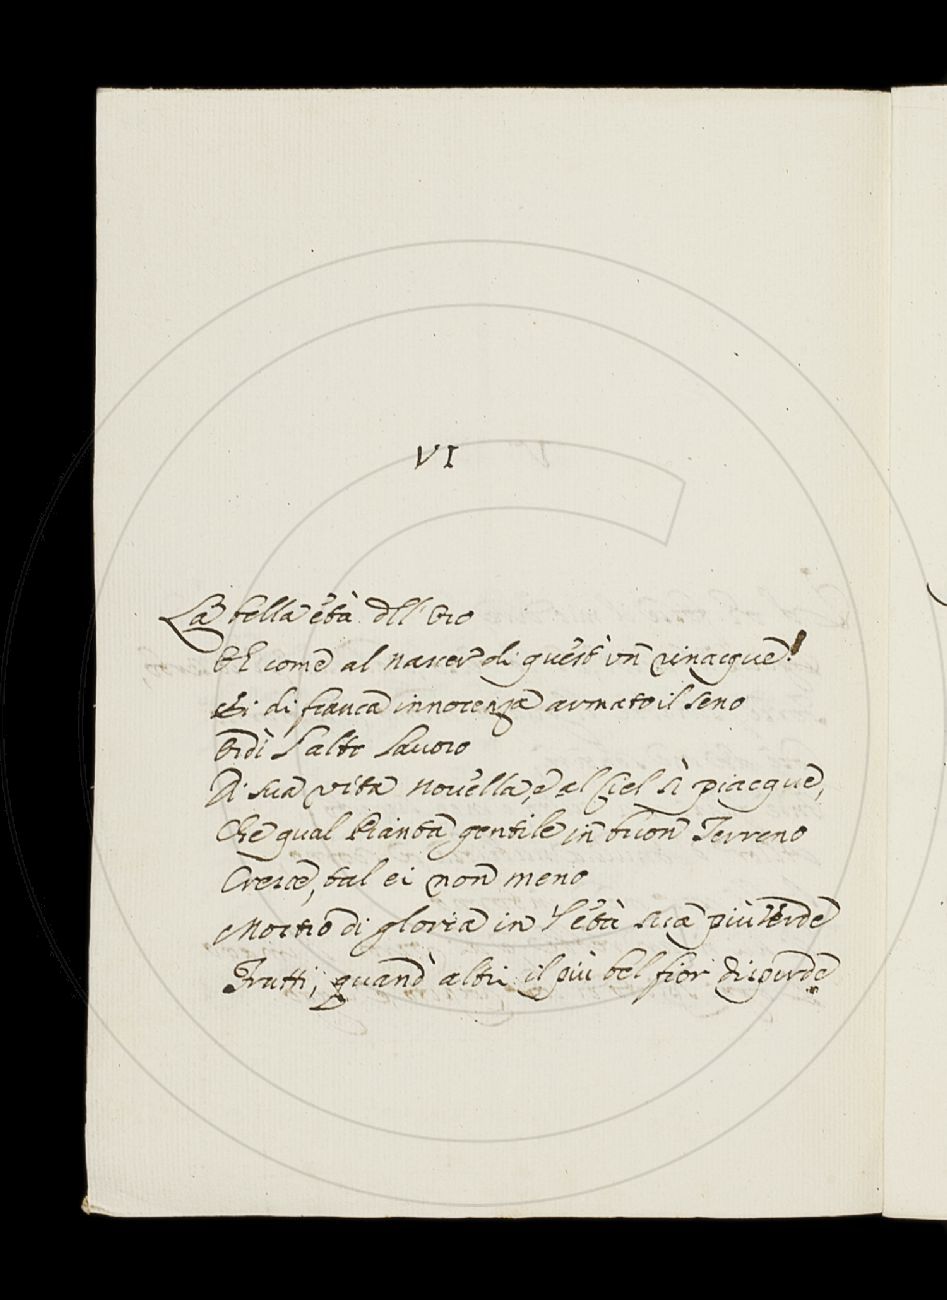 VI
La bella età dell' Oro
Oh come al nascer di quest' un rinacque!
Ei di franca innocenza armato il seno
Ordì l'alto lavoro
Di sua vita novella, e al Ciel sì piacque,
Che qual Pianta gentile in buon Terreno
Cresce, tal ei non meno
Mostrò di gloria in l'età sua più Verde
Frutti, quand' altri il più bel fior disperde